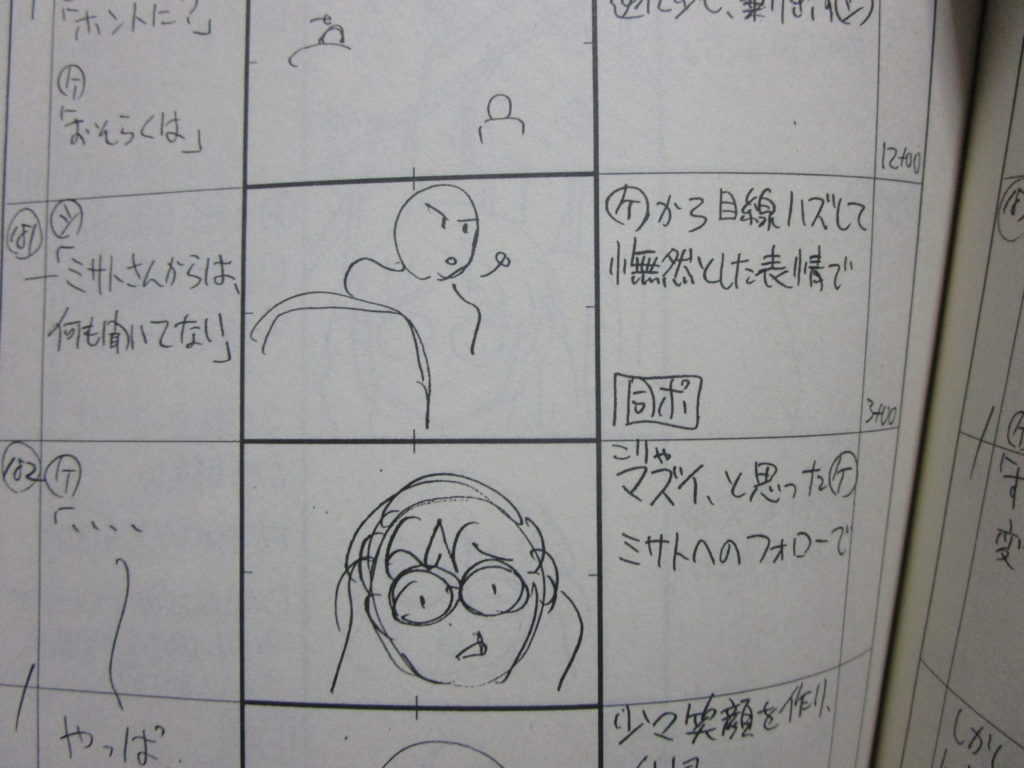 「ホントに?」
ケ
「おそらくは」
12+00
181
シ
「ミサトさんからは、
何も聞いてない」
ケから目線ハズして
憮然とした表情で
同ポ
3+00
182
ケ
「、、、、
やっぱ
こりゃ
マズイ、と思ったケ
ミサトへのフォローで
少マ笑顔を作り、
す
変
しかし